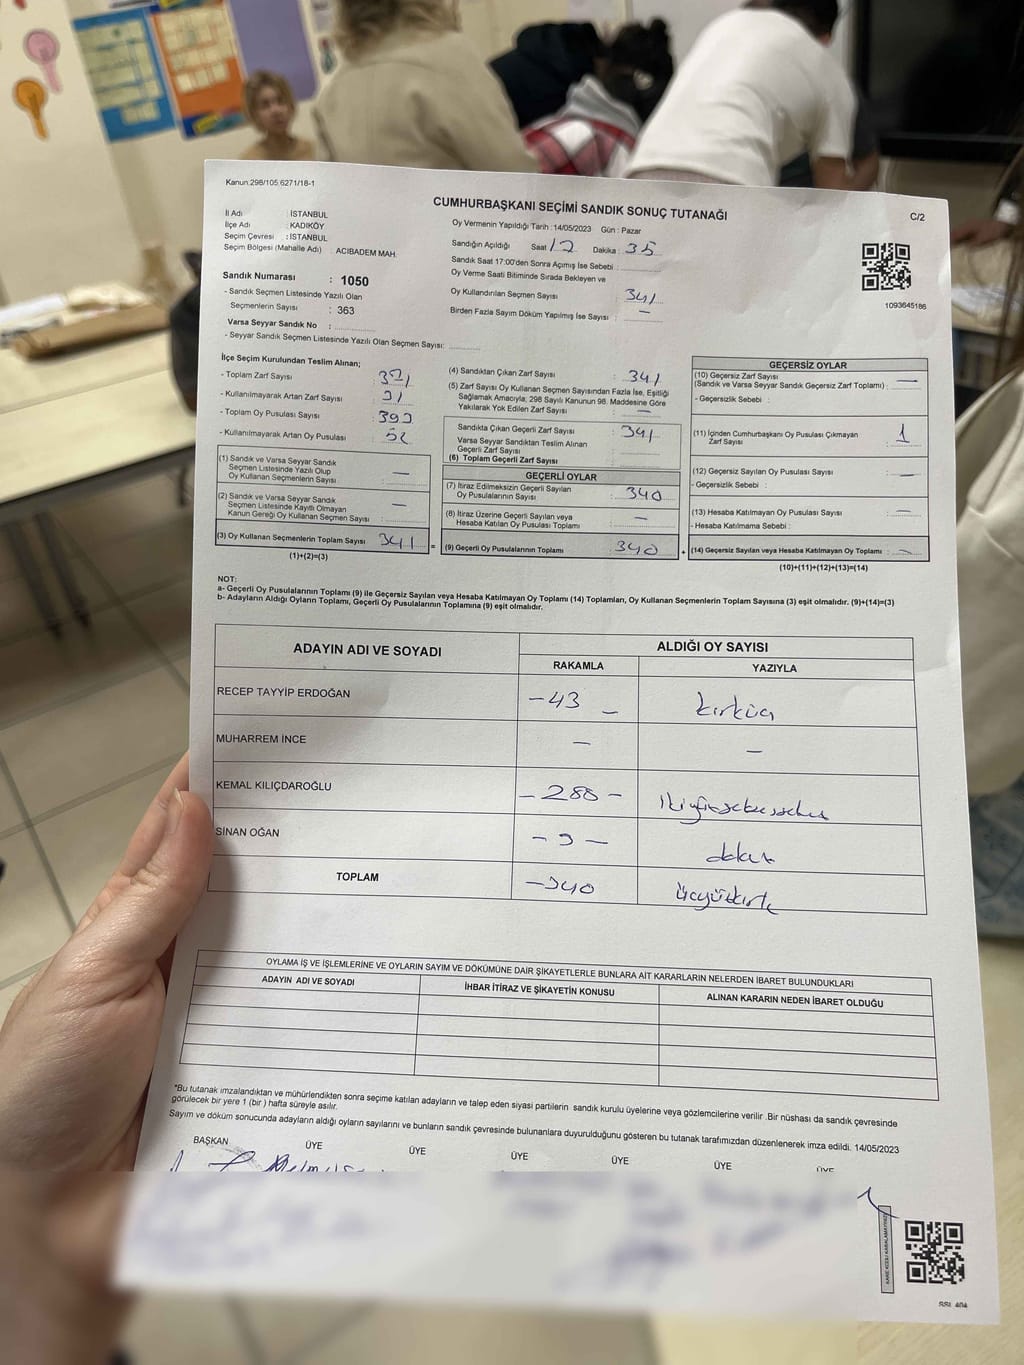 Kanun:298/105,6271/18-1
CUMHURBAŞKANI SEÇİMİ SANDIK SONUÇ TUTANAĞI
C/2
İl Adı : İSTANBUL
İlçe Adı : KADIKÖY
Seçim Çevresi : İSTANBUL
Seçim Bölgesi (Mahalle Adı) : ACIBADEM MAH.
Sandık Numarası : 1050
- Sandık Seçmen Listesinde Yazılı Olan
Seçmenlerin Sayısı : 363
Varsa Seyyar Sandık No :
- Seyyar Sandık Seçmen Listesinde Yazılı Olan Seçmen Sayısı:
Oy Vermenin Yapıldığı Tarih : 14/05/2023 Gün : Pazar
Sandığın Açıldığı Saat 17 Dakika : 35
Sandık Saat 17:00'den Sonra Açımış İse Sebebi :
Oy Verme Saati Bitiminde Sırada Bekleyen ve
Oy Kullandırılan Seçmen Sayısı : 341
Birden Fazla Sayım Döküm Yapılmış İse Sayısı : —
1093645186
İlçe Seçim Kurulundan Teslim Alınan;
- Toplam Zarf Sayısı :
- Kullanılmayarak Artan Zarf Sayısı :
- Toplam Oy Pusulası Sayısı : 393
- Kullanılmayarak Artan Oy Pusulası : 52
(1) Sandık ve Varsa Seyyar Sandık
Seçmen Listesinde Yazılı Olup
Oy Kullanan Seçmenlerin Sayısı : —
(2) Sandık ve Varsa Seyyar Sandık
Seçmen Listesinde Kayıtlı Olmayan
Kanun Gereği Oy Kullanan Seçmen Sayısı : —
(3) Oy Kullanan Seçmenlerin Toplam Sayısı : 341 =
(1)+(2)=(3)
(4) Sandıktan Çıkan Zarf Sayısı : 341
(5) Zarf Sayısı Oy Kullanan Seçmen Sayısından Fazla İse, Eşitliği
Sağlamak Amacıyla; 298 Sayılı Kanunun 98. Maddesine Göre
Yakılarak Yok Edilen Zarf Sayısı : —
Sandıkta Çıkan Geçerli Zarf Sayısı : 341
Varsa Seyyar Sandıktan Teslim Alınan
Geçerli Zarf Sayısı :
(6) Toplam Geçerli Zarf Sayısı
GEÇERLİ OYLAR
(7) İtiraz Edilmeksizin Geçerli Sayılan
Oy Pusulalarının Sayısı : 340
(8) İtiraz Üzerine Geçerli Sayılan veya
Hesaba Katılan Oy Pusulası Toplamı : —
(9) Geçerli Oy Pusulalarının Toplamı : 340 +
GEÇERSİZ OYLAR
(10) Geçersiz Zarf Sayısı
(Sandık ve Varsa Seyyar Sandık Geçersiz Zarf Toplamı) : —
- Geçersizlik Sebebi :
(11) İçinden Cumhurbaşkanı Oy Pusulası Çıkmayan
Zarf Sayısı : 1
(12) Geçersiz Sayılan Oy Pusulası Sayısı : —
- Geçersizlik Sebebi :
(13) Hesaba Katılmayan Oy Pusulası Sayısı : —
- Hesaba Katılmama Sebebi :
(14) Geçersiz Sayılan veya Hesaba Katılmayan Oy Toplamı : —
(10)+(11)+(12)+(13)=(14)
NOT:
a- Geçerli Oy Pusulalarının Toplamı (9) ile Geçersiz Sayılan veya Hesaba Katılmayan Oy Toplamı (14) Toplamları, Oy Kullanan Seçmenlerin Toplam Sayısına (3) eşit olmalıdır. (9)+(14)=(3)
b- Adayların Aldığı Oyların Toplamı, Geçerli Oy Pusulalarının Toplamına (9) eşit olmalıdır.
ADAYIN ADI VE SOYADI
ALDIĞI OY SAYISI
RAKAMLA YAZIYLA
RECEP TAYYİP ERDOĞAN -43 - kırküç
MUHARREM İNCE — —
KEMAL KILIÇDAROĞLU - 288 - ikiyüzseksensekiz
SİNAN OĞAN - 9 - dokuz
TOPLAM -340 üçyüzkırk
OYLAMA İŞ VE İŞLEMLERİNE VE OYLARIN SAYIM VE DÖKÜMÜNE DAİR ŞİKAYETLERLE BUNLARA AİT KARARLARIN NELERDEN İBARET BULUNDUKLARI
ADAYIN ADI VE SOYADI İHBAR İTİRAZ VE ŞİKAYETİN KONUSU ALINAN KARARIN NEDEN İBARET OLDUĞU
*Bu tutanak imzalandıktan ve mühürlendikten sonra seçime katılan adayların ve talep eden siyasi partilerin sandık kurulu üyelerine veya gözlemcilerine verilir .Bir nüshası da sandık çevresinde
görülecek bir yere 1 (bir ) hafta süreyle asılır.
Sayım ve döküm sonucunda adayların aldığı oyların sayılarını ve bunların sandık çevresinde bulunanlara duyurulduğunu gösteren bu tutanak tarafımızdan düzenlenerek imza edildi. 14/05/2023
BAŞKAN ÜYE ÜYE ÜYE ÜYE ÜYE ÜYE